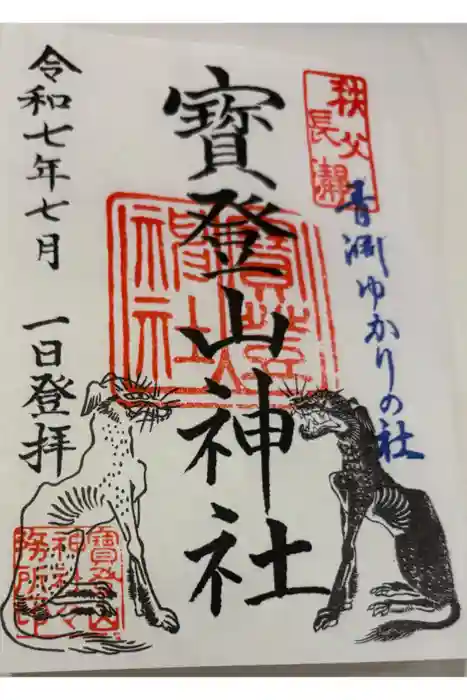 秩父
長瀞
青淵ゆかりの社
寳登山神社
寳登山神社
令和七年七月一日登拝
寳登山
神社
務所印